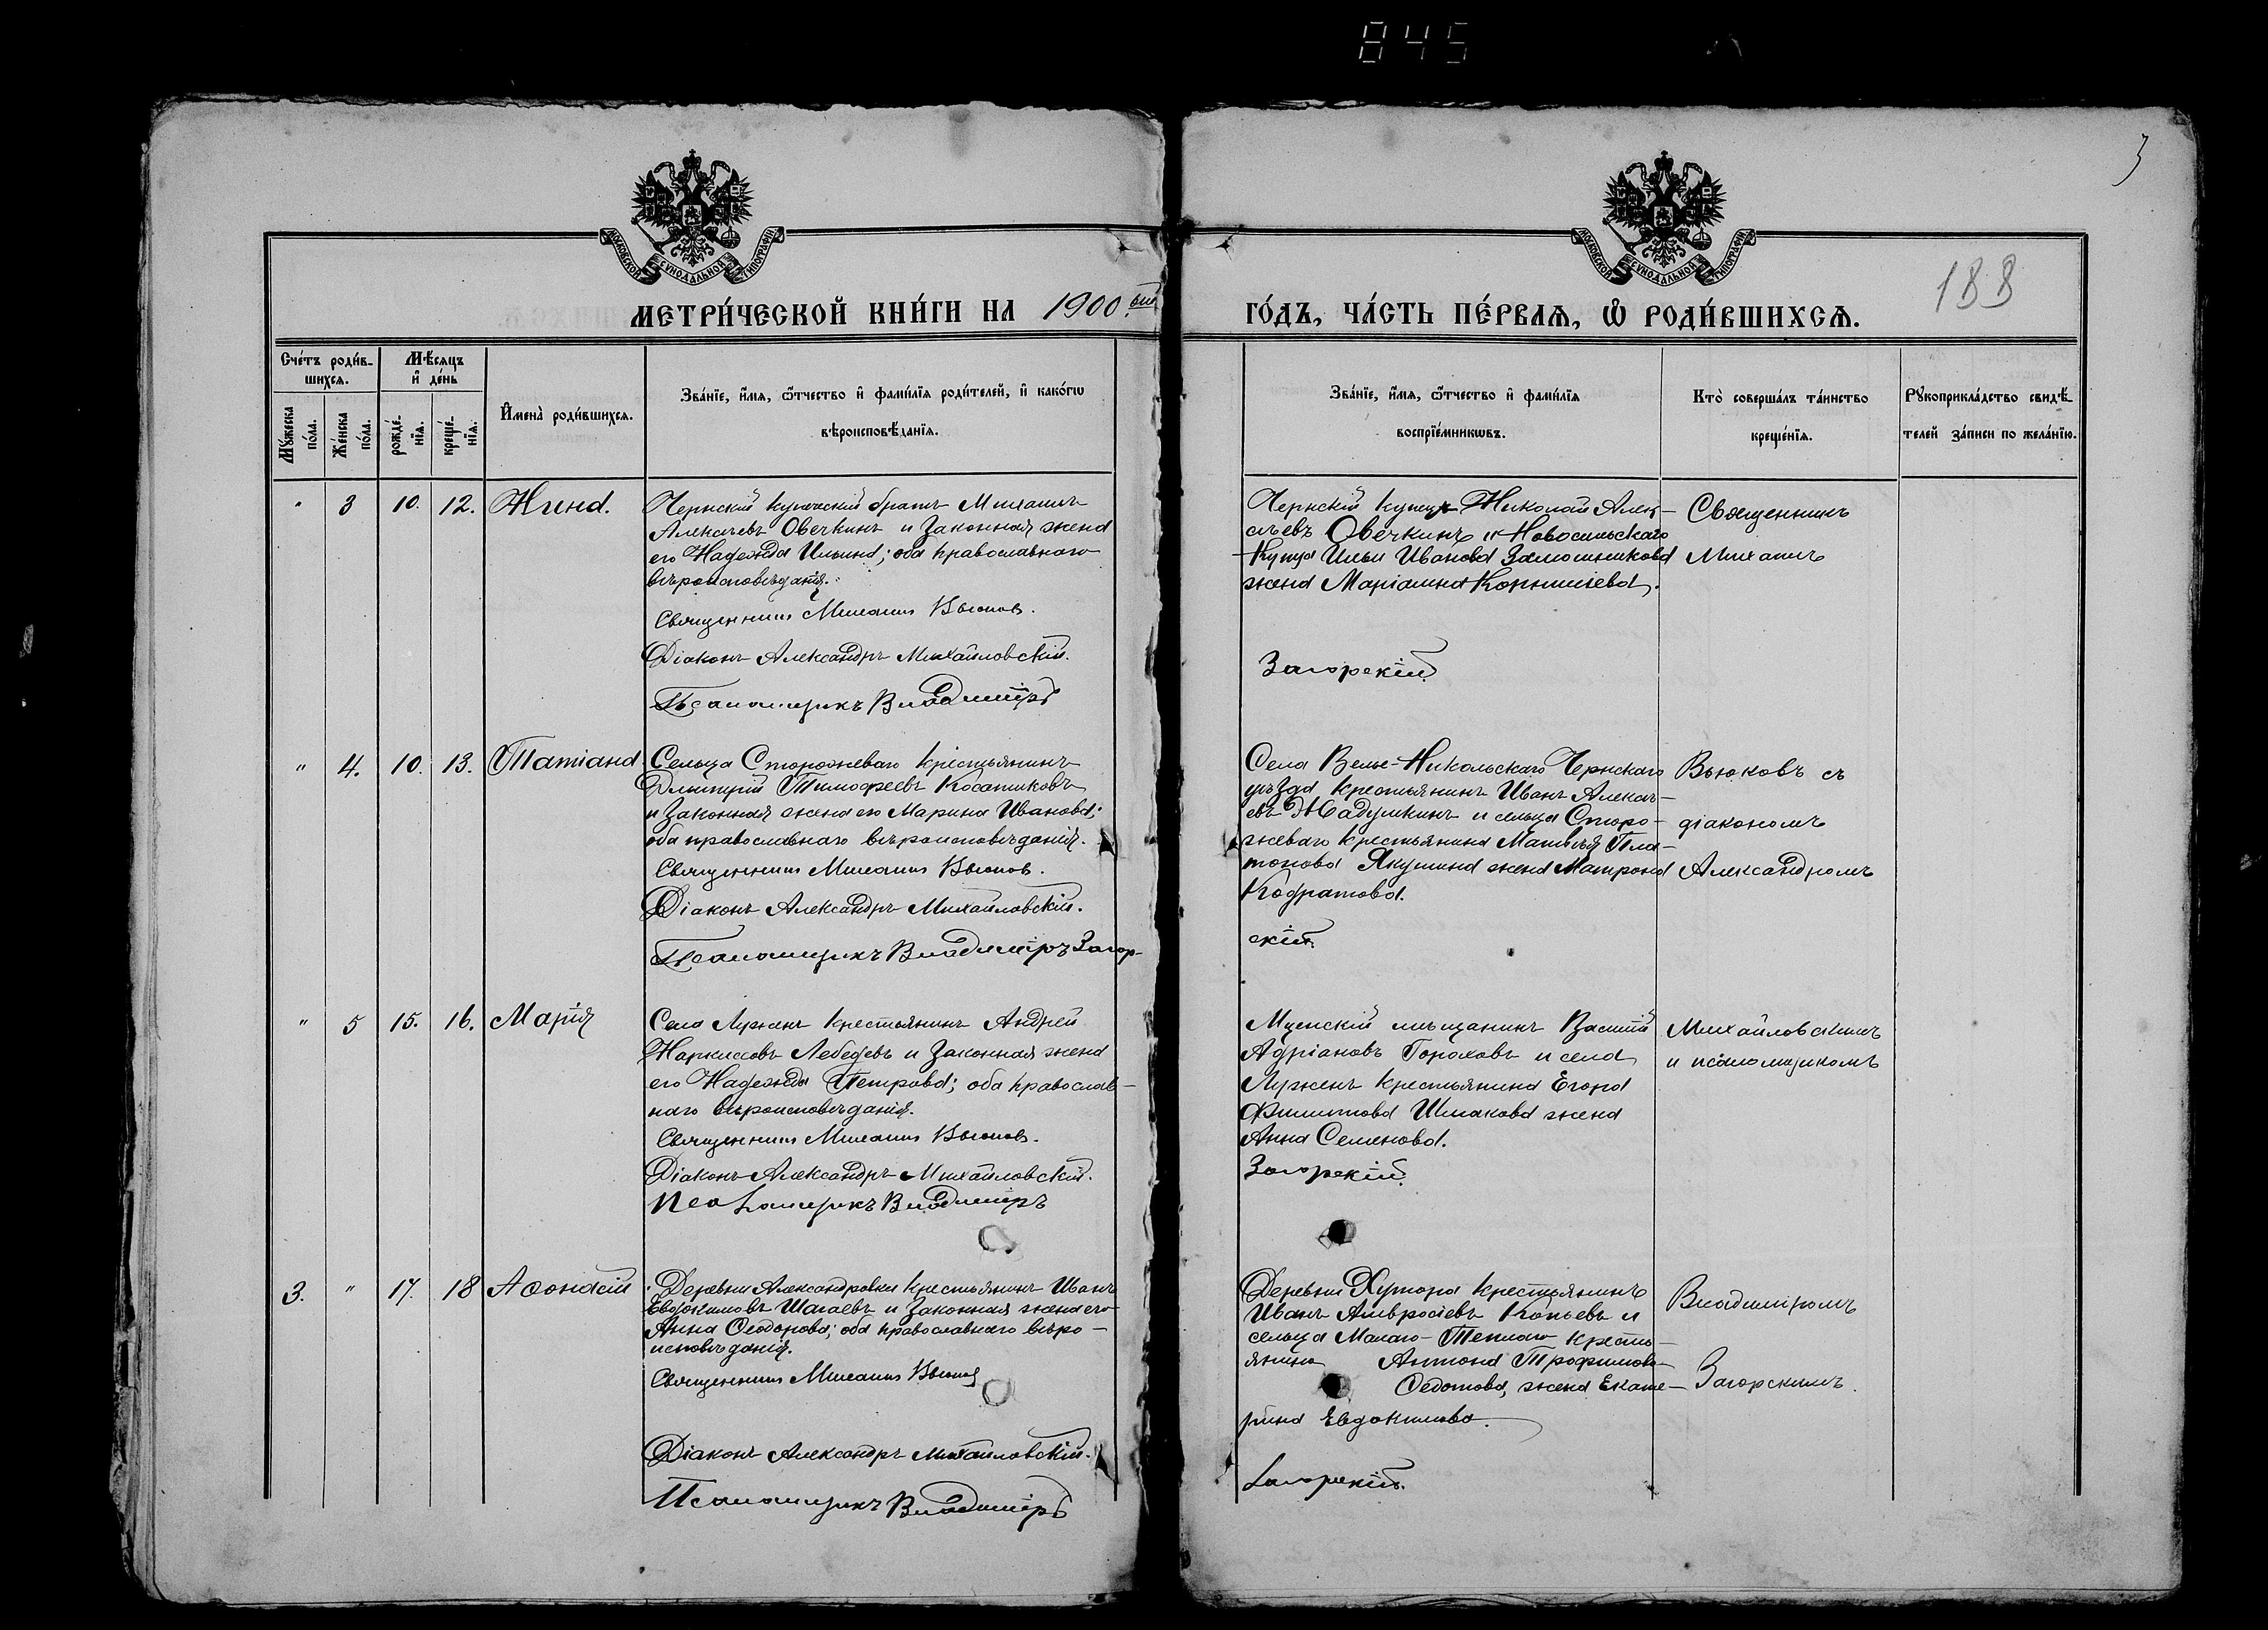 845
3
188
МОСКОВСКОЙ СѴНОДАЛЬНОЙ ТИПОГРАФІИ
МОСКОВСКОЙ СѴНОДАЛЬНОЙ ТИПОГРАФІИ
МЕТРИ́ЧЕСКОЙ КНИ́ГИ НА 1900.ый
ГО́ДЪ, ЧА́СТЬ ПЕ́РВАѦ, Ѡ҆ РОДИ́ВШИХСѦ.
Сче́тъ роди́в-
шихсѧ.
Мѣ́сѧцъ
и҆ де́нь
Мꙋ́жеска
по́ла.
Же́нска
по́ла.
рожде́-
нїѧ.
креще́-
нїѧ.
И҆мена̀ роди́вшихсѧ.
Зва́нїе, и҆́мѧ, ѻ҆́тчество и҆ фами́лїѧ роди́телей, и҆ како́гѡ
вѣроисповѣ́данїѧ.
Зва́нїе, и҆́мѧ, ѻ҆́тчество и҆ фами́лїѧ
воспрїе́мникѡвъ.
Кто̀ соверша́лъ та́инство
креще́нїѧ.
Рꙋкоприкла́дство свидѣ́-
телей за́писи по жела́нїю.
" 3 10. 12. Нина.
Чернскій купеческій братъ Михаилъ
Алексѣевъ Овечкинъ и законная жена
его Надежда Ильина; оба православнаго
вѣроисповѣданія.
Священникъ Михаилъ Вьюковъ.
Діаконъ Александръ Михайловскій.
Псаломщикъ Владиміръ
Чернскій купецъ Николай Алек-
сѣевъ Овечкинъ и Новосильскаго
купца Ильи Иванова жена Маріамна
Загорскій.
Священникъ
Михаилъ
" 4. 10. 13. Татіана
Сельца Сторожеваго крестьянинъ
Димитрій Тимофеевъ Косатиковъ
и законная жена его Марина Иванова;
оба православнаго вѣроисповѣданія.
Священникъ Михаилъ Вьюковъ.
Діаконъ Александръ Михайловскій.
Псаломщикъ Владиміръ Загор-
Села Велье-Никольскаго Чернскаго
уѣзда крестьянинъ Иванъ Алексѣ-
евъ и сельца Сторо-
жеваго крестьянина Матвѣя Пла-
тонова Якушина жена Матрона
Кодратова.
скій.
Вьюковъ съ
діакономъ
Александромъ
" 5 15. 16. Марія
Села Лужень крестьянинъ Андрей
Наркиссовъ Лебедевъ и законная жена
его Надежда Петрова; оба православ-
наго вѣроисповѣданія.
Священникъ Михаилъ Вьюковъ.
Діаконъ Александръ Михайловскій.
Псаломщикъ Владиміръ
Мценскій мѣщанинъ Василій
Адріановъ Гороховъ и села
Лужень крестьянина Егора
Филиппова Шмакова жена
Анна Семенова.
Загорскій.
Михайловскимъ
и псаломщикомъ
3. " 17. 18 Аѳонасій
Деревни Александровки крестьянинъ Иванъ
Евдокимовъ Шагаевъ и законная жена его
Анна Ѳеодорова; оба православнаго вѣро-
исповѣданія.
Священникъ Михаилъ Вьюковъ
Діаконъ Александръ Михайловскій.
Псаломщикъ Владиміръ
Деревни Хутора крестьянинъ
Иванъ Амвросіевъ Копьевъ и
сельца Малаго-Теплаго кресть-
янина Антона Трофимова
Ѳедотова, жена Екате-
рина Евдокимова.
Загорскій.
Владиміромъ
Загорскимъ.